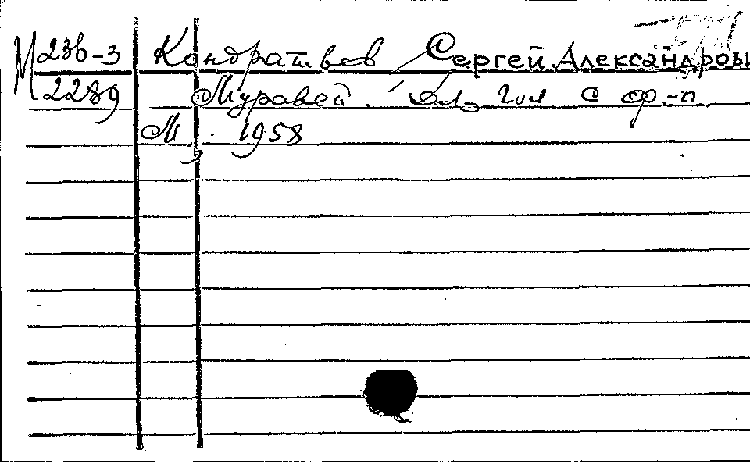 М 236-3 Кондратьев Сергей Александрович
2289 Муравей. Для гол с ф-п
М., 1958